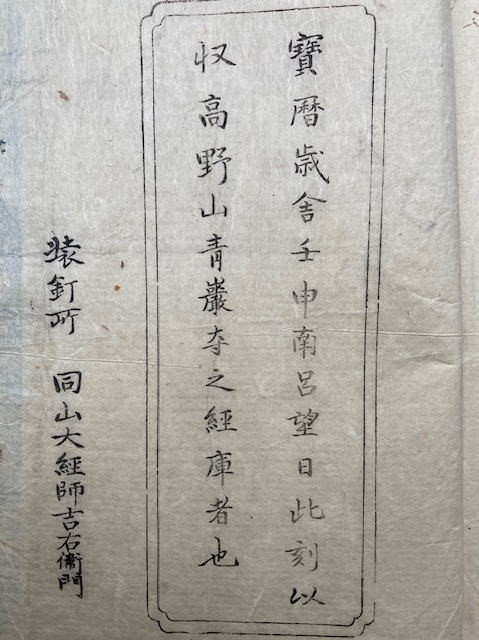 寶曆歳舎壬申南呂望日此刻以
収高野山青巖寺之經庫者也
装釘所 同山大經師吉右衛門